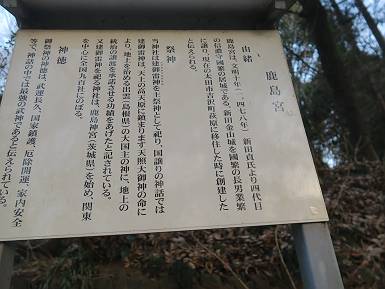 鹿島宮
由緒
鹿島宮は、文明十年(一四七八年)新田貞氏より四代目
の信濃守國繁の居城である、新田金山城を國繁の長男業繁
に譲り、現在の太田市吉沢町萩原に移住した時に創建した
と伝えられる。
祭神
当神社は建御雷神を主祭神として祀り、国譲りの神話では
建御雷神は、天上の高天原に鎮まります天照大御神の命に
より、地上を治める出雲(島根県)の大国主の神に、地上の
統治の譲渡を承諾させる功績をあげたと記されている。
又建御雷神を祀る神社は、鹿島神宮(茨城県)を始め、関東
を中心に全国九百社にのぼる。
神徳
御祭神の神徳は、武運長久、国家鎮護、厄除開運、家内安全
等で、神話の中で最強の武神であると伝えられている。